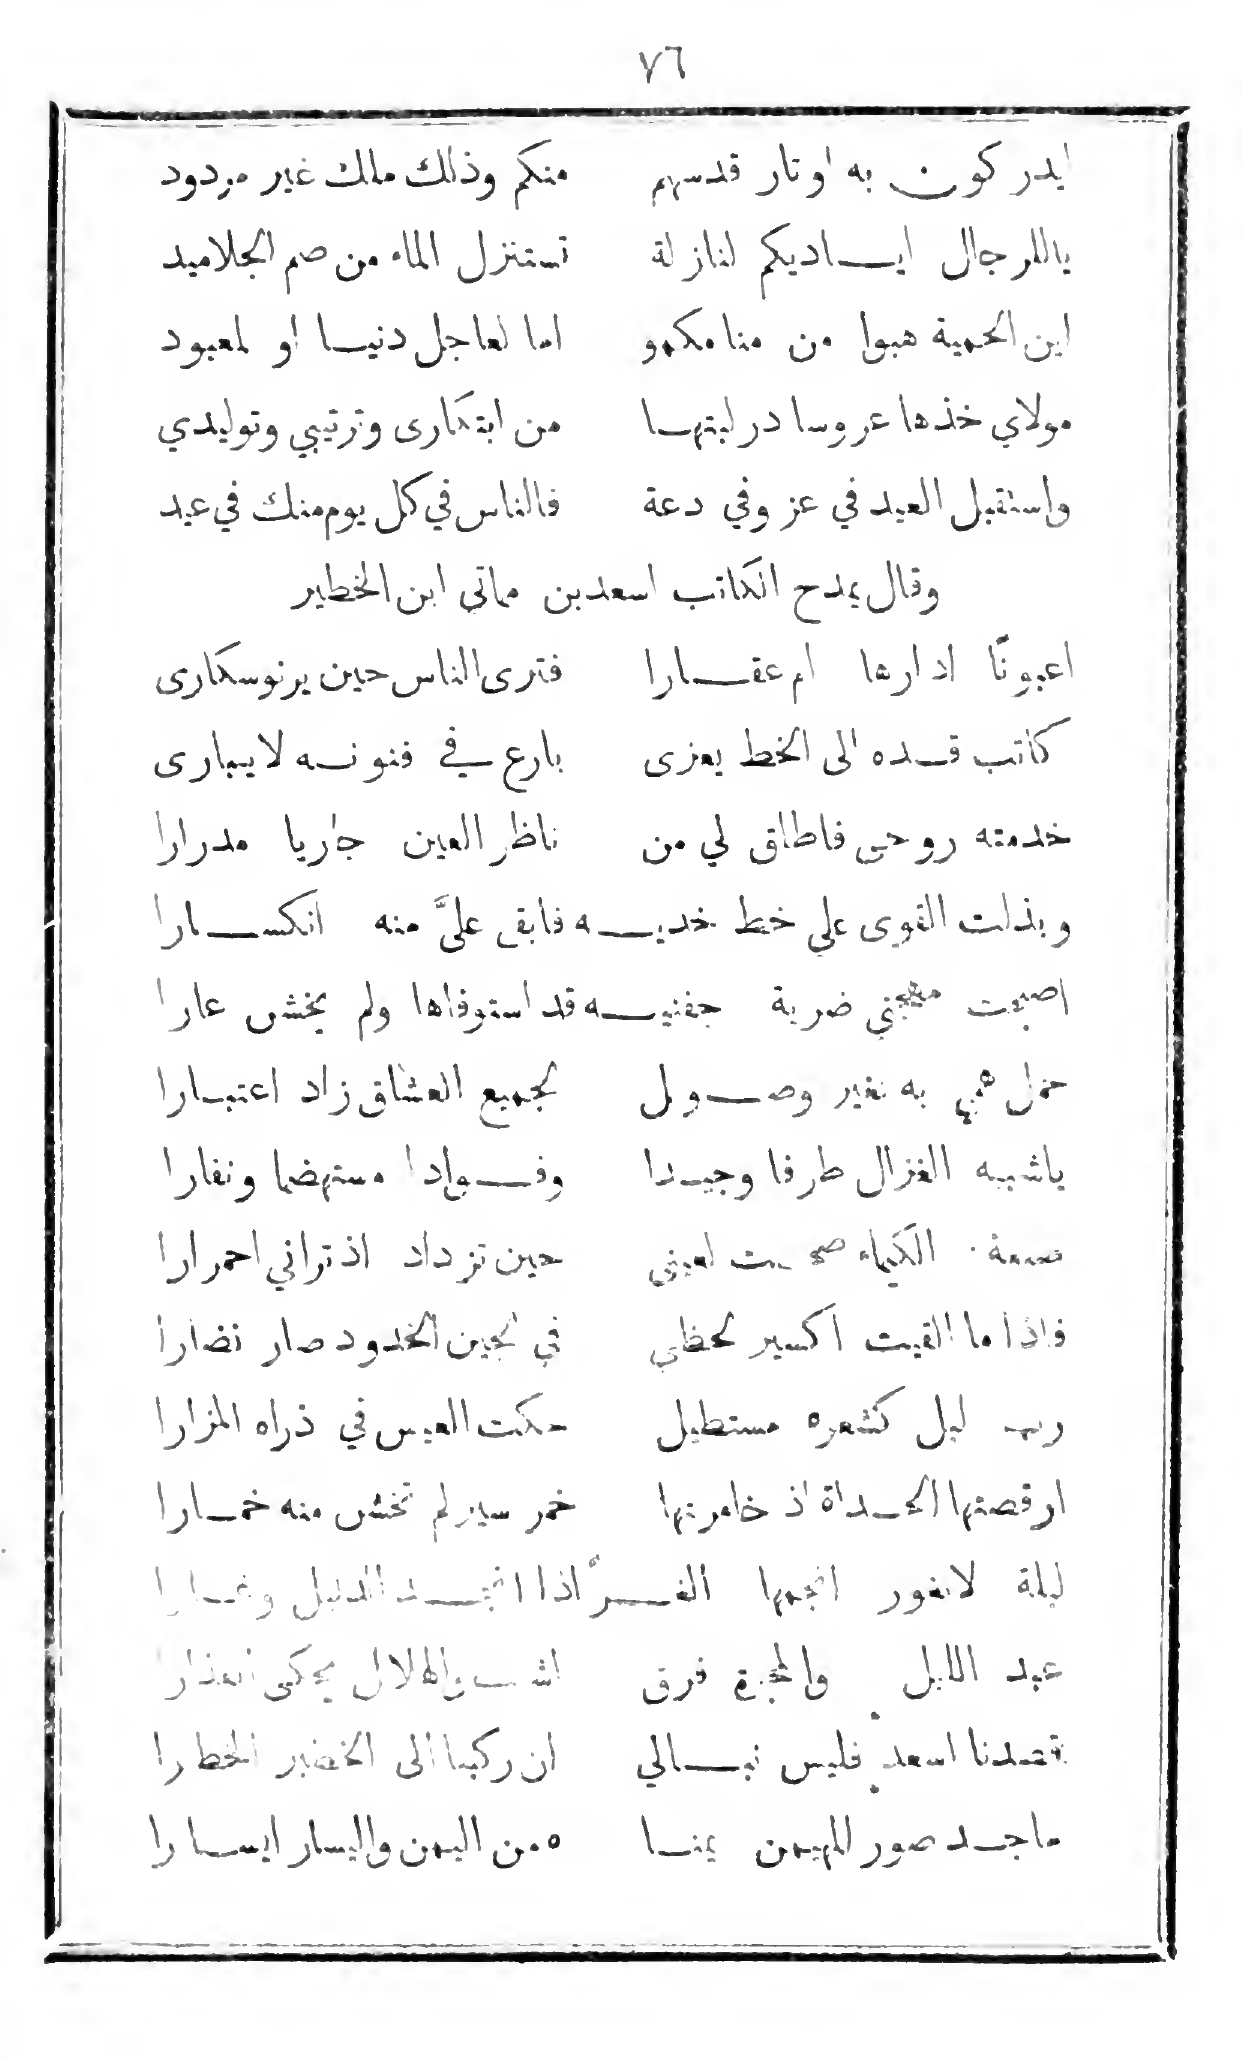 ٧٦
ايدركون به اوتار قدسهم منكم وذلك ملك غير مردود
ياللرجال اياديكم لنازلة تستنزل الماء من صم الجلاميد
اين الحمية هبوا من منامكمو اما لعاجل دنيا او لمعبود
مولاي خذها عروسا در لبتها من ابتكارى وترتيبي وتوليدي
واستقبل العيد في عز وفي دعة فالناس في كل يوم منك في عيد
وقال يمدح الكاتب اسعد بن مماتي ابن الخطير
اعيونًا ادارها ام عقارا فترى الناس حين يرنو سكارى
كاتب قده الى الخط يعزى بارع في فنونه لا يبارى
خدمته روحى فاطلق لي من ناظر العين جاريا مدرارا
وبذلت القوى على خط خديه فابقى عليَّ منه انكسارا
اصبحت مهجتي ضريبة جفنيه قد استوفاها ولم يخش عارا
حمل همي به بغير وصول لجميع العشاق زاد اعتبارا
ياشبيه الغزال طرفا وجيدا وفوادا مستهضما ونفارا
صنعة الكيمياء صحت لعينى حين تزداد اذ تراني احمرارا
فاذا ما القيت اكسير لحظي في لجين الخدود صار نضارا
رب ليل كشعره مستطيل حكت العيس في ذراه المزارا
ارقصتها الحداة اذ خامرتها خمر سير لم تخش منه خمارا
ليلة لا تغور انجمها الغرّ اذا انجد الدليل وغارا
عبد الليل والمجرة فرق اشب والهلال يحكى العذارا
قصدنا اسعد فليس نبالي ان ركبنا الى الخضير الخطارا
ماجد صور المهيمن يمنا ه من اليمن واليسار ايسارا